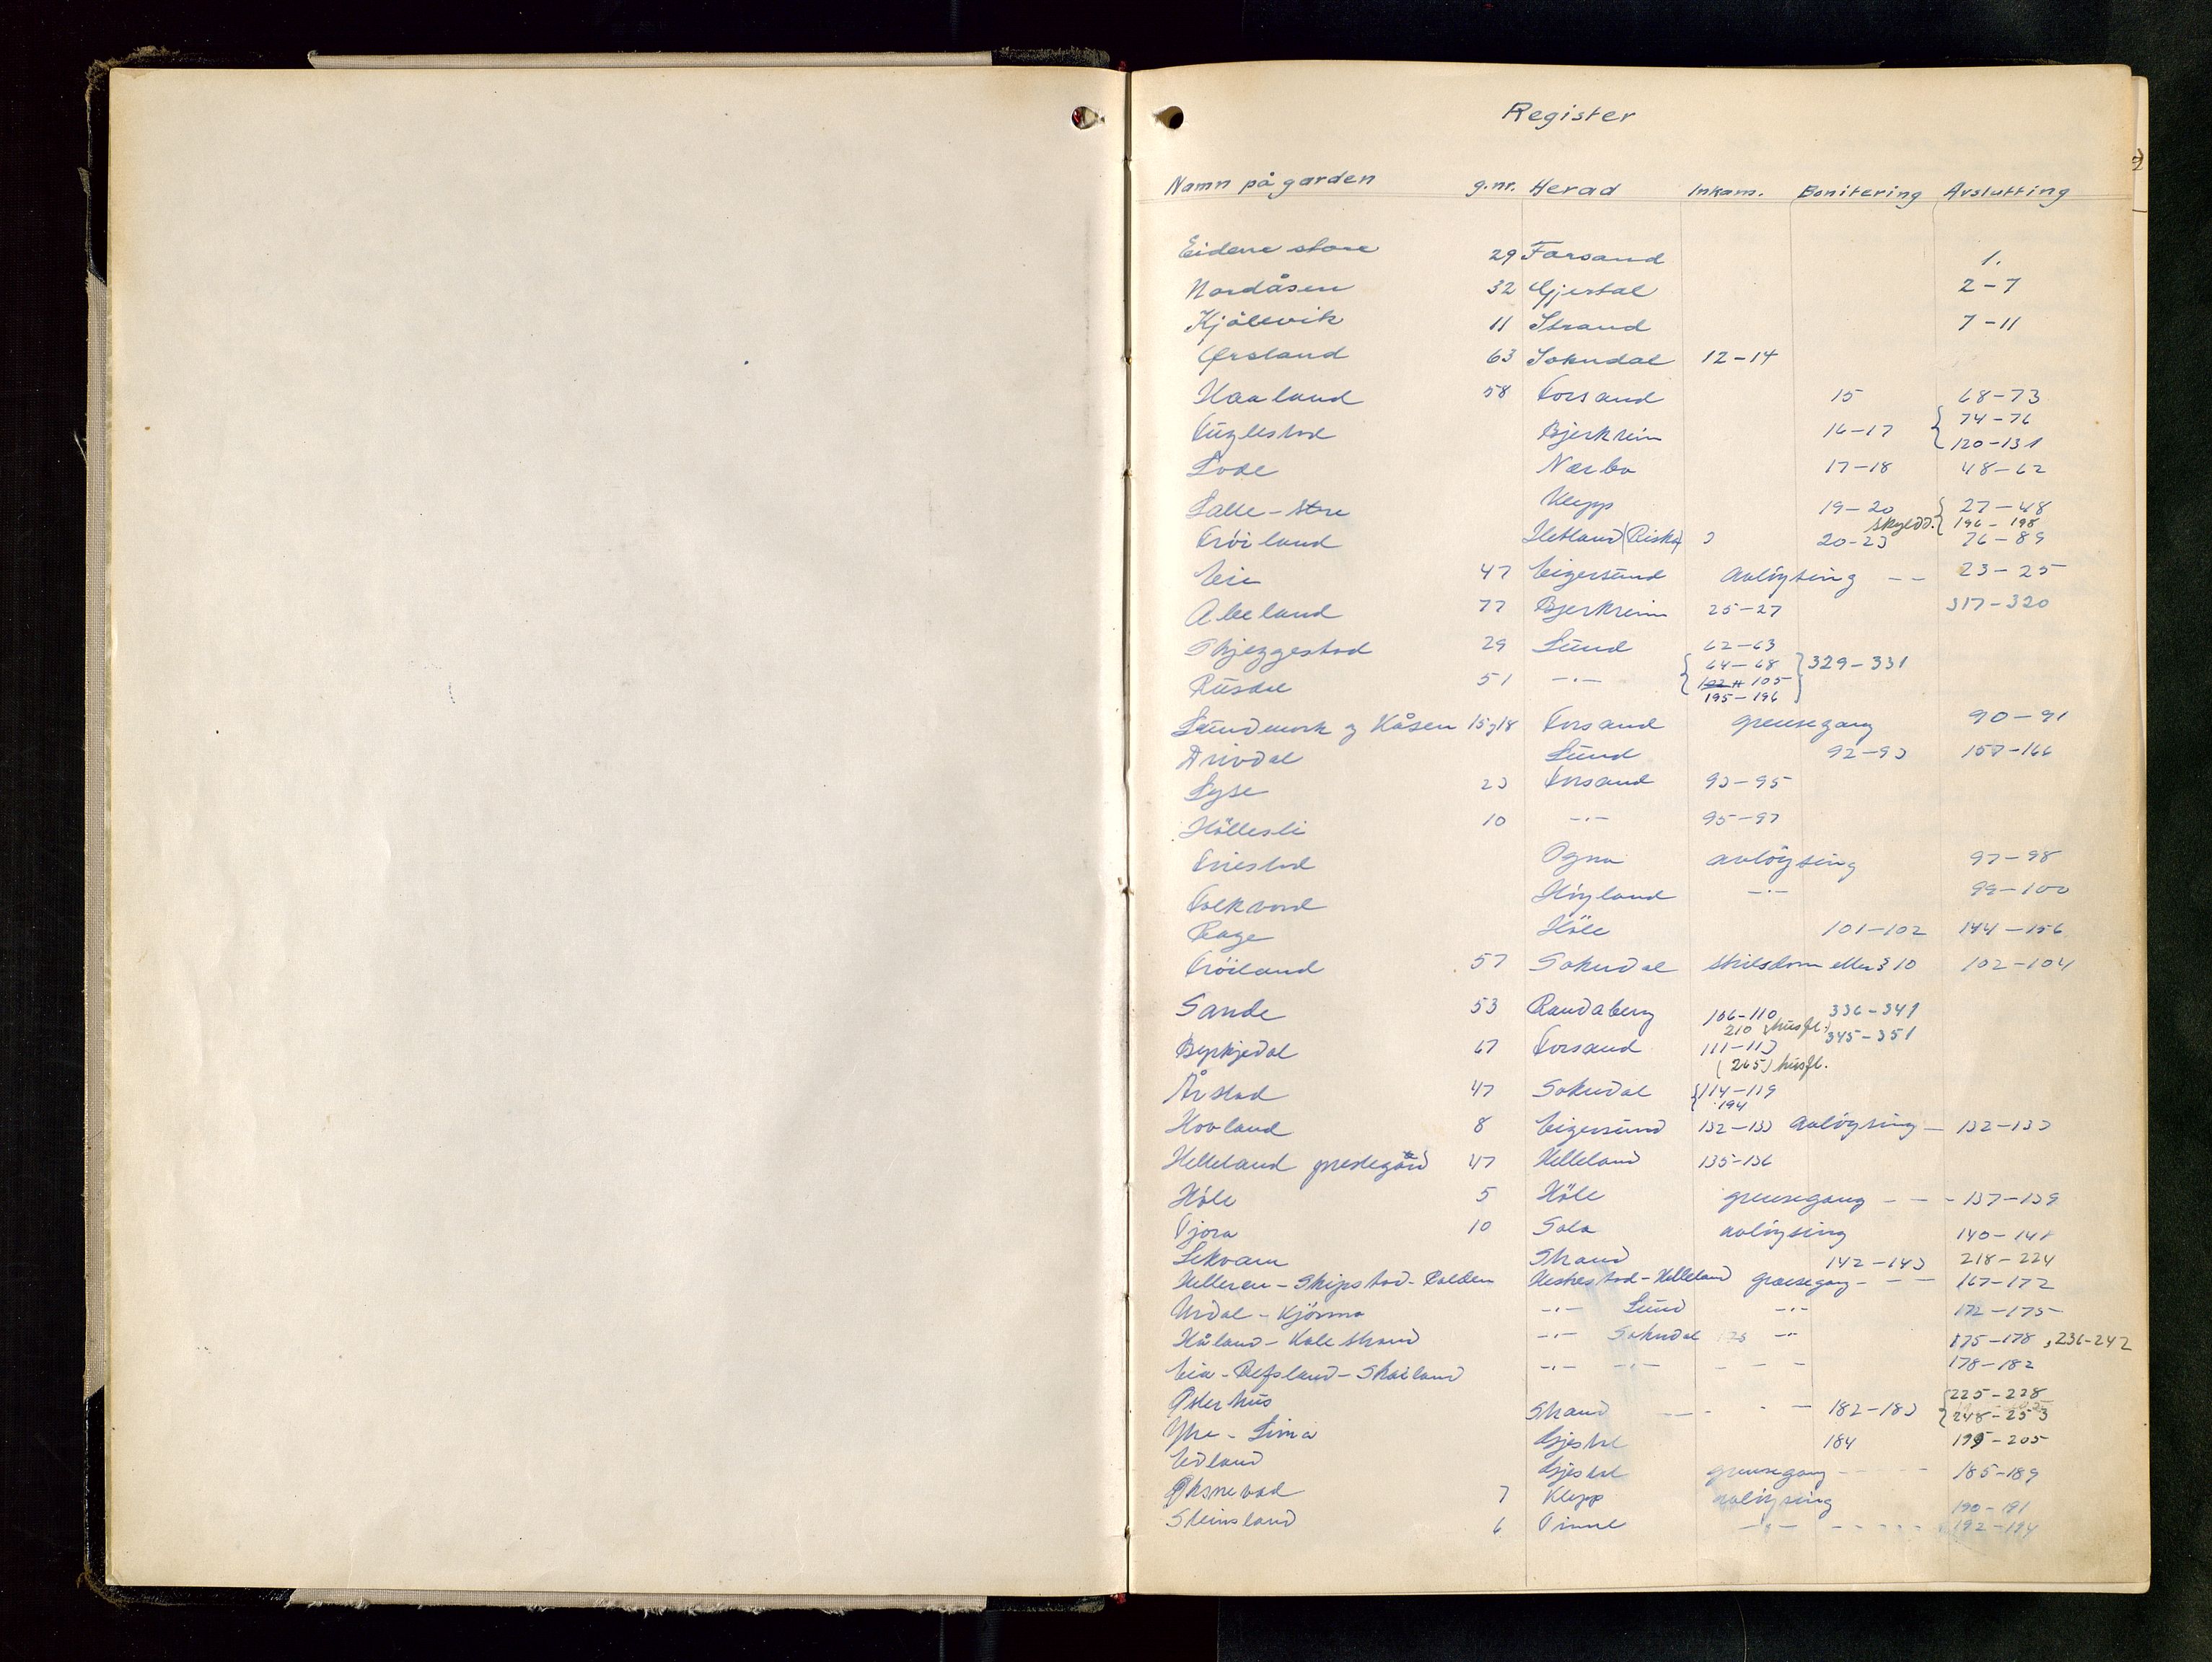 Register
Namn på garden g.nr. Herad Inkam. Bonitering Avslutting
Eidene store 29 Forsand 1.
Nordåsen 32 Gjestal 2-7
Kjölevik 11 Strand 7-11
Ørsland 63 Sokndal 12-14
Haaland 58 Forsand 15 68-73
Fuglestad Bjerkreim 16-17 { 74-76
120-131
Lode Nærbo 17-18 48-62
Salte-Store Klepp 19-20 { 27-48
skyldd. 196-198
Fröiland Hetland (Riska) 20-23 76-89
Eie 47 Eigersund avlöysing -- 23-25
Abeland 77 Bjerkreim 25-27 317-320
Skjeggestad 29 Lund 62-63
Rusdal 51 -"- { 64-68 } 329-331
105
195-196
Lundmork og Håsen 15 og 18 Forsand grensegang 90-91
Drivdal Lund 92-93 157-166
Lyse 23 Forsand 93-95
Höllesli 10 -"- 95-97
Ogna avlöysing 97-98
Folkvord Höyland -"- 99-100
Rage Höle 101-102 144-156
Fröiland 57 Sokndal skilsdom eller § 10 102-104
Sande 53 Randaberg 106-110 336-341
210 (husfl.) 345-351
Byrkjedal 67 Forsand 111-113
(265) husfl.
Årstad 47 Sokndal { 114-119
194
Hovland 8 Eigersund 132-133 avlöysing - 132-133
Helleland prestegård 47 Helleland 135-136
Höle 5 Höle grensegang - - - 137-139
Tjora 10 Sola avlöysing 140-141
Lekvam Strand 142-143 218-224
Helleren - Skipstad - Heskestad - Helleland grensegang - - - 167-172
Urdal - Kjörmo -"- Lund -"- 172-175
Håland - Kalestrand -"- Sokndal -"- 175-178, 236-242
Eia - Refsland - Skailand -"- -"- - - - 178-182
Österhus Strand - - - 182-183 { 225-228
248-253
Ytre - Lima Gjestal 184 195-205
Edland Gjestal grensegang - - - 185-189
Öksnevad 7 Klepp avlöysing 190-191
Steinsland 6 Time -"- - - - - - 192-194